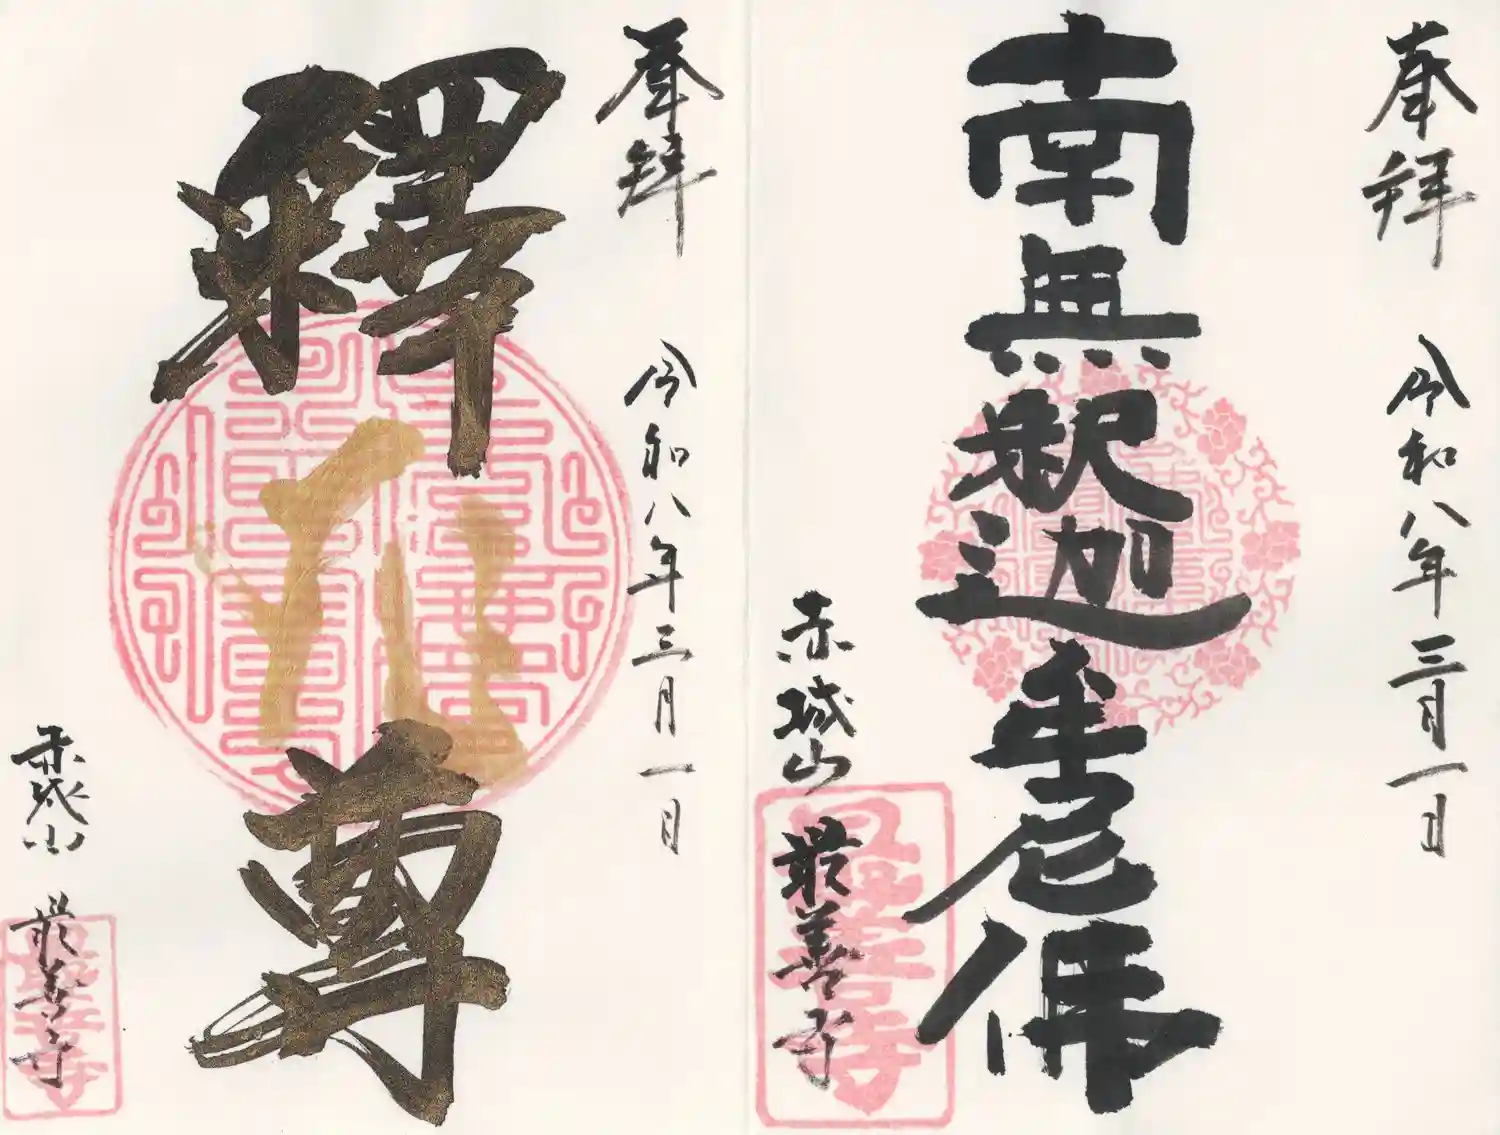 奉拝
令和八年三月一日
南無釈迦牟尼佛
赤城山 最善寺
最善寺
奉拝
令和八年三月一日
釋
尊
赤城山 最善寺
最善寺